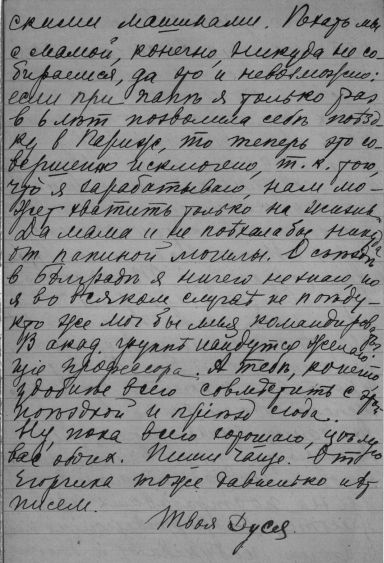 скими машинами. Ехать мы
с мамой, конечно, никуда не со-
бираемся, да это и невозможно:
если при папѣ я только раз
в 6 лѣт позволила себѣ поѣзд
ку в Париж, то теперь это со-
вершенно исключено, т. к. того,
что я зарабатываю, нам мо-
жет хватить только на жизнь.
Да мама и не поѣхала бы никуда
от папиной могилы. О съѣздѣ
в Бѣлградѣ я ничего не знаю, но
я во всяком случаѣ не поѣду-
кто же мог бы меня командировать
В акад. группѣ найдутся желаю-
щіе профессора. А тебѣ, конечно
удобнѣе всего совмѣстить с этой
поѣздкой и пріѣзд сюда.
Ну, пока всего хорошаго, цѣлую
вас обѣих. Пиши чаще. От
Егорушка тоже давненько нѣт
писем.
Твоя Дуся.